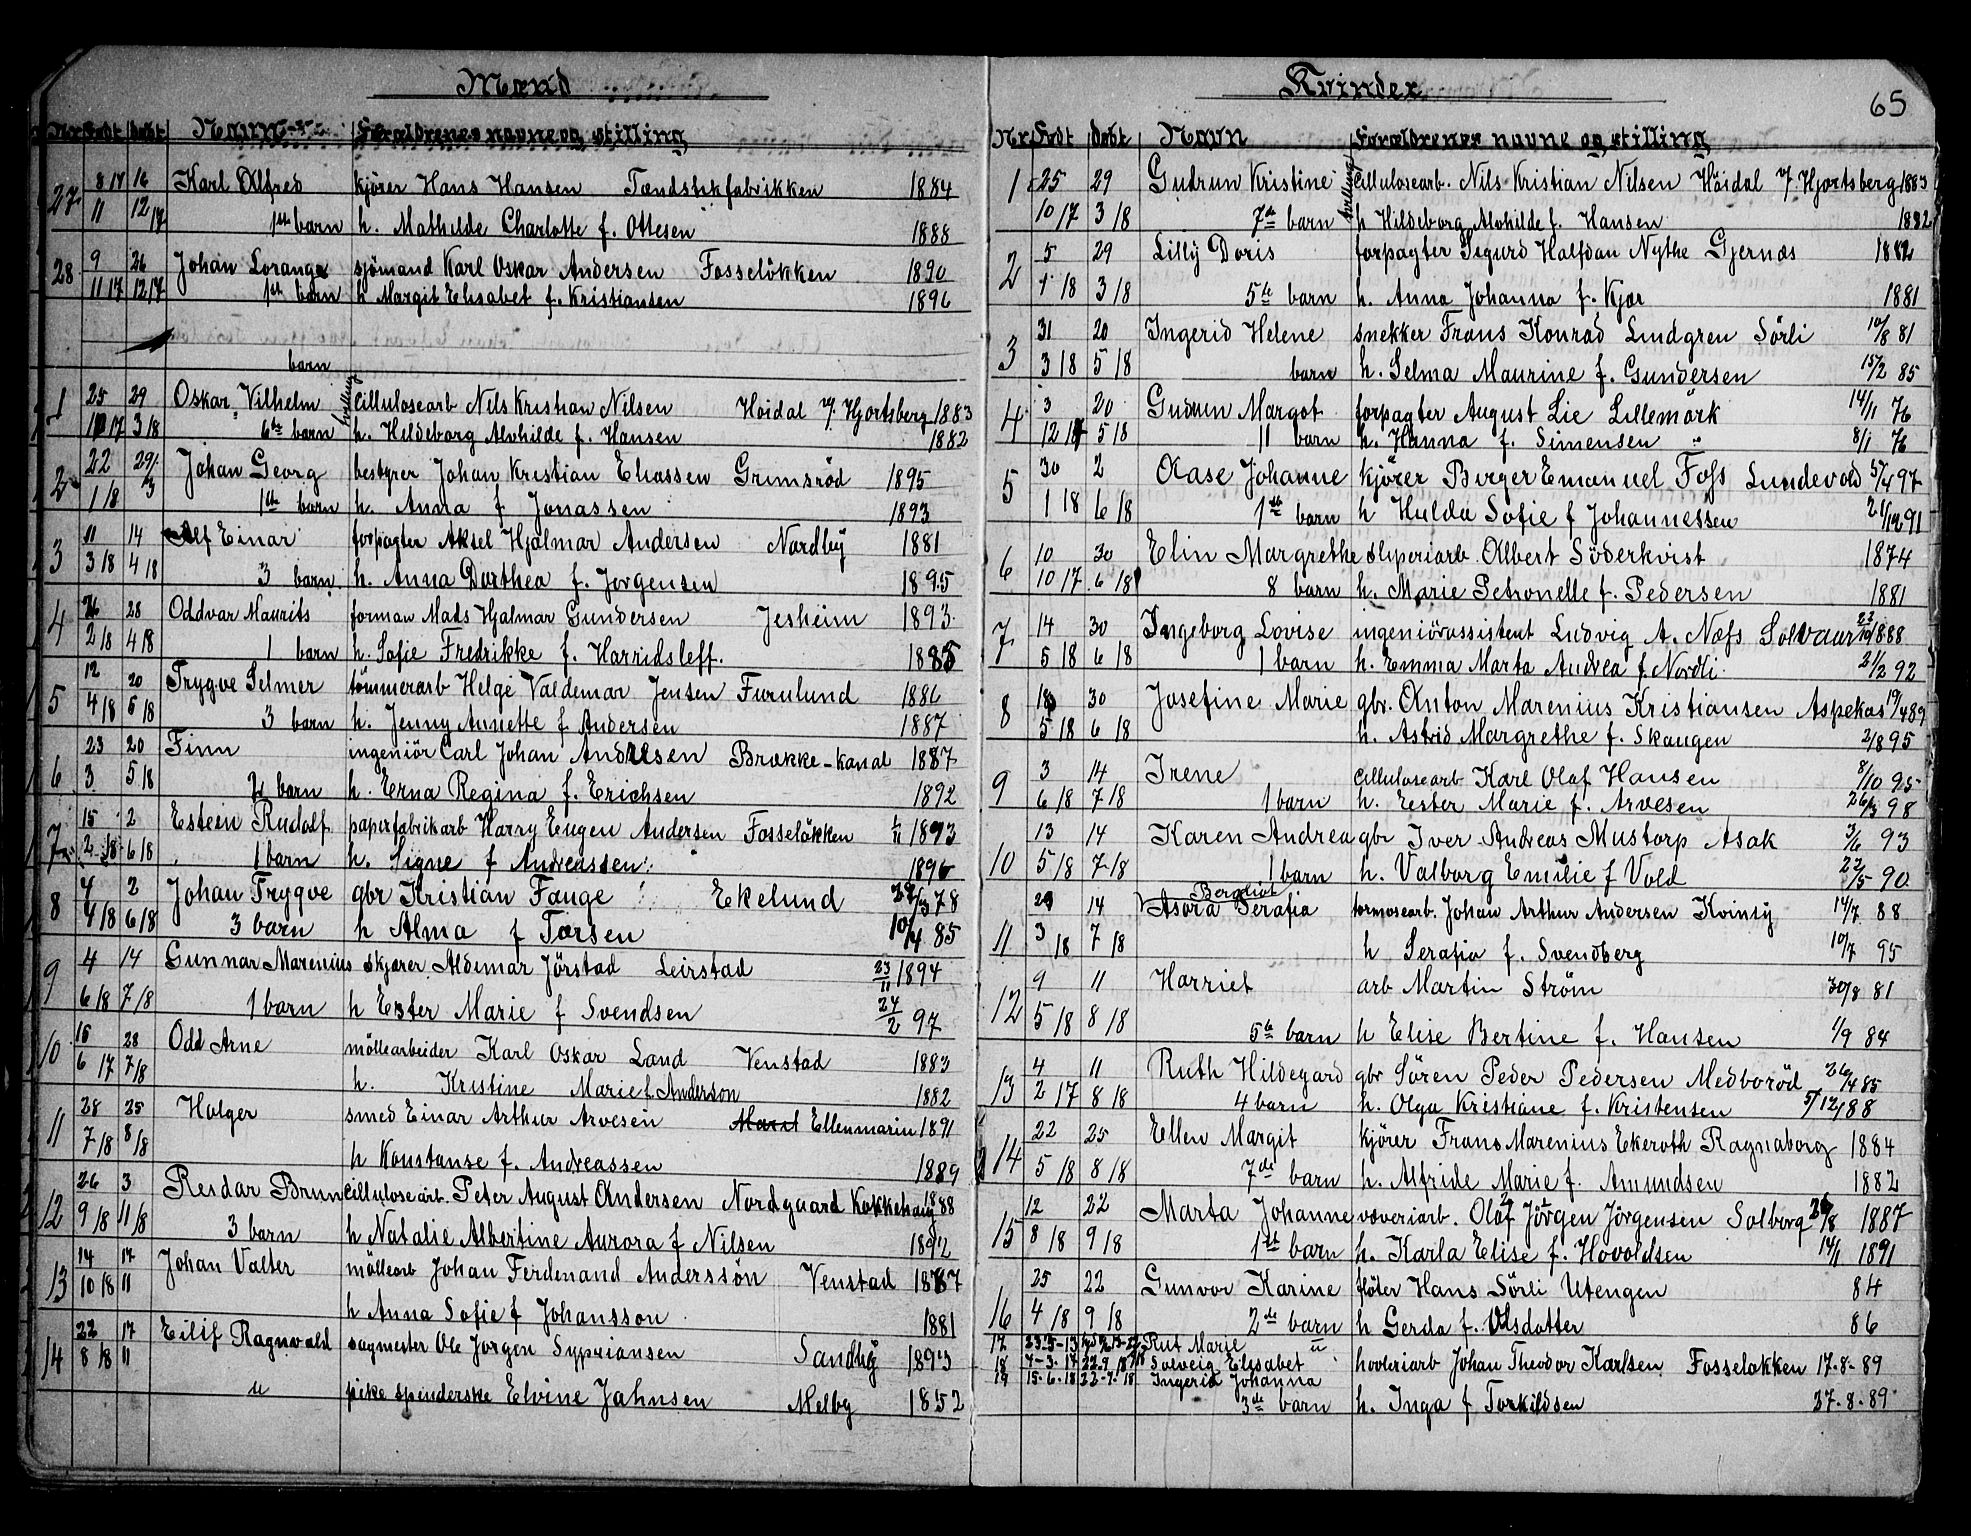 Mænd
Nr Født døbt Navn Forældrenes navne og stilling
27 8 17 16 Karl Alfred kjörer Hans Hansen Tændstikfabrikken 1884
11 12 17 1ste barn h. Mathilde Charlotte f. Ottesen 1888
28 9 26 Johan Lorang sjömand Karl Oskar Andersen Fosselökken 1890
11 17 12 17 1ste barn h Margit Elisabet f. Kristiansen 1896
barn
1 25 29 Oskar Vilhelm tvilling Cellulosearb Nils Kristian Nilsen Höidal v/ Hjortsberg 1883
10 17 3/8 6te barn h. Hildeborg Alvhilde f. Hansen 1882
2 22 29/3 Johan Georg bestyrer Johan Kristian Eliassen Grimsröd 1895
1/8 1ste barn h. Anna f Jonassen 1893
3 11 14 Alf Einar forpagter Aksel Hjalmar Andersen Nordby 1881
3/8 4/8 3 barn h. Anna Dorthea f. Jorgensen 1895
4 26 28 Oddvar Maurits forman Mads Hjalmar Gundersen Jesheim 1893
2/8 4/8 1 barn h. Sofie Fredrikke f. Harridsleff. 1885
5 12 20 Trygve Selmer tömmerarb Helge Valdemar Jensen Furulund 1886
4/8 5/8 3 barn h. Jenny Annette f Andersen 1887
6 23 20 Finn ingeniör Carl Johan Andresen Brække-kanal 1887
3 5/8 2 barn h. Erna Regina f. Erichsen 1892
7 15 2 Estein Rudolf paperfabrikarb Harry Eugen Andersen Fosselökken 1893
2/8 6/8 1 barn h. Signe f Andreassen 1896
8 4 2 Johan Trygve gbr Kristian Fange Ekelund 78
4/8 6/8 3 barn h Alma f Torsen 10/4 85
9 4 14 Gunnar Marenius skjærer Aldemar Jörstad Leirstad 23/11 1894
6/8 7/8 1 barn h Ester Marie f Svendsen 24/2 97
10 16 28 Odd Arne möllearbeider Karl Oskar Land Venstad 1883
6 17 7/8 h. Kristine Marie f. Anderson 1882
11 28 25 Holger smed Einar Arthur Arvesen Ellenmarin 1891
7/8 8/8 h Konstanse f. Andreassen 1889
12 26 3 Reidar Brun cellulosearb. Peter August Andersen Nordgaard Kokkehaug 1888
9/8 11/8 3 barn h Natalie Albertine Aurora f Nilsen 1892
13 14 17 Johan Valter möllearb Johan Ferdenand Anderssön Venstad 1877
10/8 11 h Anna Sofie f Johansson 1881
14 22 17 Eilif Ragnvald sagmester Ole Jörgen Sypriansen Sandby 1893
8/8 11 u pike spinderske Elvine Jahnsen Melby 1852
Kvinder 65
Nr. Født døbt Navn Forældrenes navne og stilling
1 25 29 Gudrun Kristine tvilling cellulosearb. Nils Kristian Nilsen Höidal v/ Hjortsberg 1883
10/7 3/8 7de barn h Hildeborg Alvhilde f. Hansen 1882
2 5 29 Lilly Doris forpagter Sigurd Halfdan Nythe Gjernæs 1882
1/8 3/8 5te barn h. Anna Johanna f. Kjær 1881
3 31 20 Ingerid Helene snekker Frans Konrad Lindgren Sörli 10/8 81
3/8 5/8 barn h. Selma Maurine f. Gundersen 15/2 85
4 3 20 Gudrun Margot forpagter August Lie Lillemörk 14/11 76
12 17 5/8 11 barn h. Hanna f. Simensen " 8/1 76
5 30 2 Aase Johanne kjörer Birger Emanuel Foss Lundevold 5/4 97
1/8 6/8 1ste barn h Hulda Sofie f Johannessen 21/12 91
6 10 30 Elin Margrethe sliperiarb. Albert Söderkvist 1874
10/7 6/8 8 barn h. Marie Petronelle f. Pedersen 1881
7 14 30 Ingeborg Lovise ingeniörassistent Ludvig A. Næss Solvaur 1888
5/8 6/8 1 barn h. Emma Marta Andrea f. Nordli 21/2 92
8 18 30 Josefine Marie gbr. Anton Marenius Kristiansen Aspekas 19/4 89
5/8 6/8 h. Astrid Margrethe f. Skaugen 2/8 95
9 3 14 Irene cellulosearb Karl Olaf Hansen 8/10 95
6/8 7/8 1 barn h. Ester Marie f. Arvesen 26/3 98
10 13 14 Karen Andrea gbr Iver Andreas Mustorp Asak 3/6 93
5/8 7/8 1 barn h. Valborg Emilie f Vold 22/5 90
11 29 14 Asora Bergliot Serafia tormosearb. Johan Arthur Andersen Kvinsy 14/7 88
3/8 7/8 h Serafia f. Svendberg 10/7 95
12 9 11 Harriet arb Martin Ström 30/8 81
5/8 8/8 5te barn h Elise Bertine f. Hansen 1/9 84
13 4 11 Ruth Hildegard gbr Sören Peder Pedersen Medboröd 26/4 85
2 17 8/8 4 barn h. Olga Kristiane f. Kristensen 5/12 88
14 22 25 Ellen Margit kjörer Frans Marenius Ekeroth Ragnaborg 1884
5/8 8/8 7de barn h. Alfride Marie f. Amundsen 1882
15 12 22 Marta Johanne væveriarb. Olaf Jörgen Jörgensen Solborg 1887
8/8 9/8 1ste barn h. Karla Elise f. Hovoldsen 14/1 1891
16 25 22 Gunvor Karine flöter Hans Sörli Utengen 84
4/8 9/8 2de barn h Gerda f. Olsdatter 86
17 Rut Marie "
18 Solveig Elisabet hovleriarb Johan Theodor Karlsen Fosselokken 17-8-89
19 15-6-18 22-9-18 Ingerid Johanna
3de barn h. Inga f Torkildsen 27-8-89